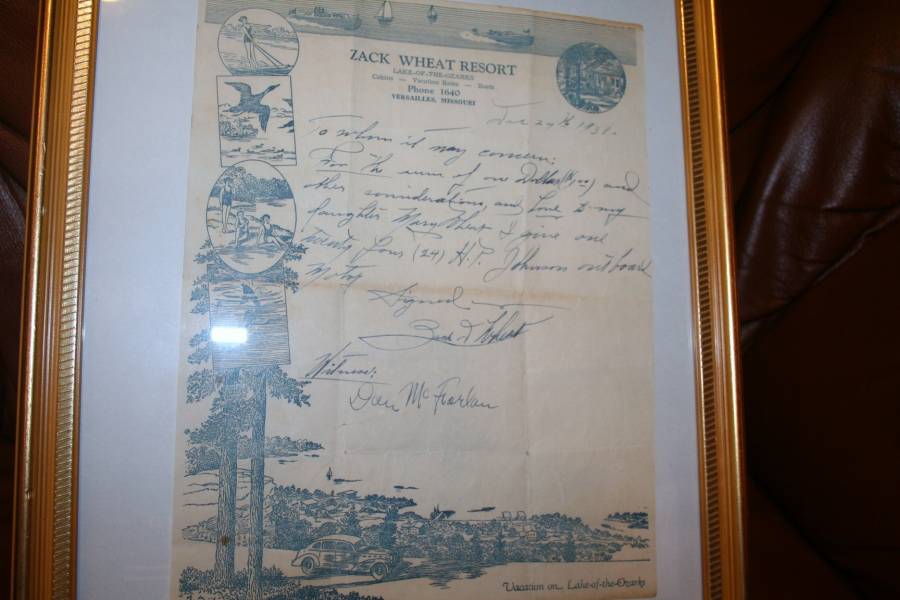 ZACK WHEAT RESORT
LAKE-OF-THE-OZARKS
Cabins — Vacation — Boats
Phone 1640
VERSAILLES, MISSOURI
24th
To whom it may concern:
For the sum of one Dollar and
other considerations, and love to my
daughter Mary Wheat I give one
Twenty Four (24) H.P. Johnson outboard
Motor
Signed
Zack D Wheat
Witness:
Dan McFarlan
Vacation on... Lake-of-the-Ozarks